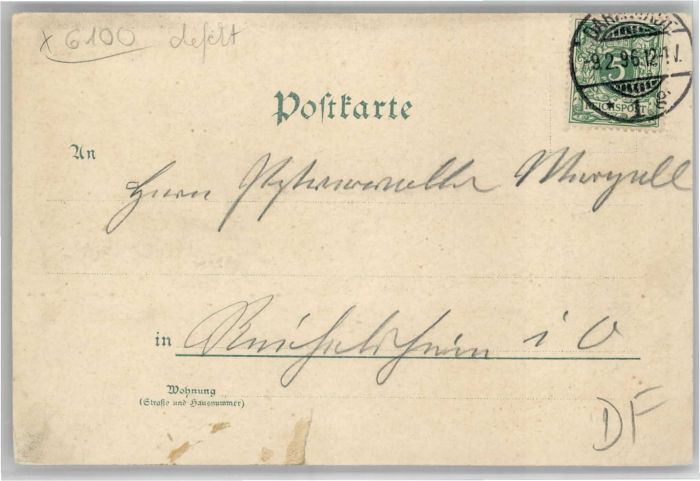 x 6100 defekt
DARMSTADT
9.2.96.12-1N.
* 1 g.
5
REICHSPOST
Postkarte
An
Herrn Marzell
in Reichelsheim i O
Wohnung
(Straße und Hausnummer)
DF